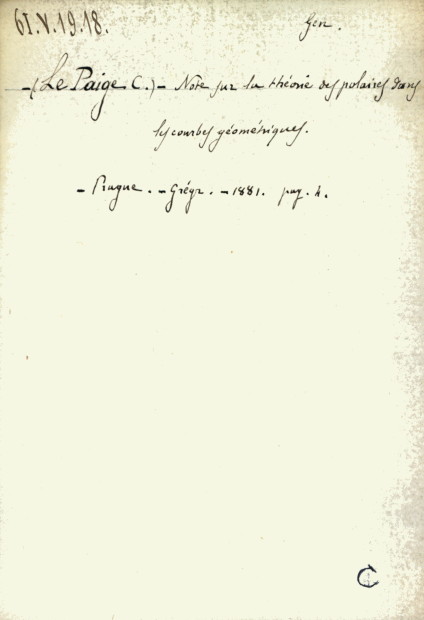 61.V.19.18.
Gen.
-(Le Paige C.)- Note sur la théorie des polaires dans
les courbes géométriques.
- Prague. - Grégr. - 1881. pag. 4.
C